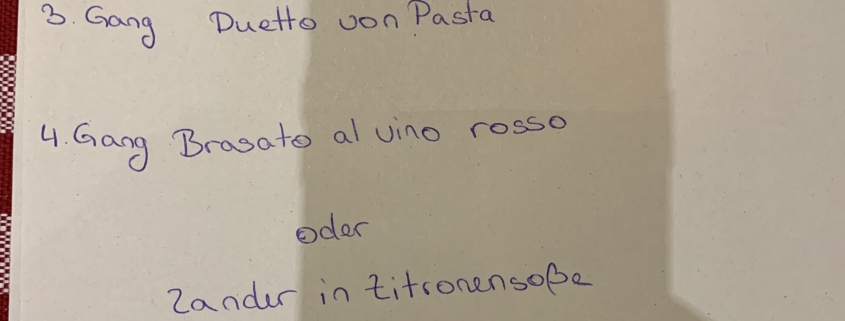 3. Gang Duetto von Pasta
4. Gang Brasato al vino rosso
oder
Zander in Zitronensoße